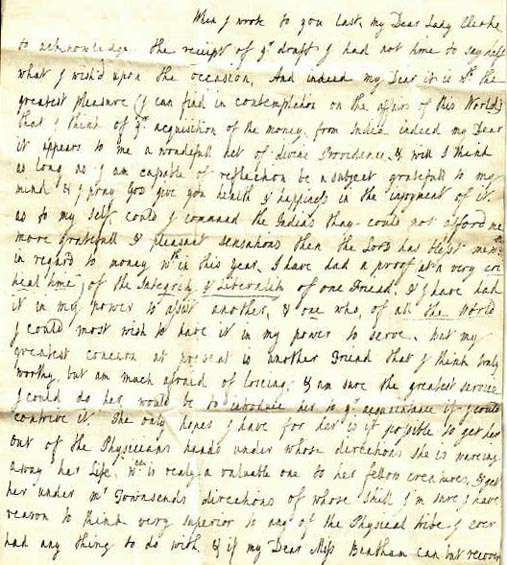 When I wrote to you last, my Dear Lady Clerke
to acknowledge the receipt of yr draft I had not time to say half
what I wish'd upon the occasion, And indeed my Dear it is wth the
greatest pleasure (I can find in contemplation on the affairs of this World)
that I think of yr acquisition of the money from India indeed my Dear
it appears to me a wonderfull act of divine Providence, & will I think
as long as I am capable of reflection be a subject gratefull to my
mind & I pray God give you health & happiness in the injoyment of it
as to my self could I command the Indias they could not afford me
more gratefull & pleasant sensations then the Lord has blest me wth
in regard to money wth in this year, I have had a proof at a very cri
tical time, of the Integrity & Liberality of one Friend, & I have had
it in my power to assist another, & one who, of all the World
I could most wish to have it in my power to serve, but my
greatest concern at present is another Friend that I think truly
worthy, but am much afraid of loosing; & am sure the greatest service
I could do her would be to introduce her to yr acquaintance if I could
contrive it. The only hopes I have for her is if possible to get her
out of the Physicians hands under whose directions she is
away her Life, wch is realy a valuable one to her fellow creatures, & get
her under mr Townsends directions of whose skill I'm sure I have
reason to think very superior to any of the Physical tribe I ever
had any thing to do with, & if my Dear Miss Bentham can but recover